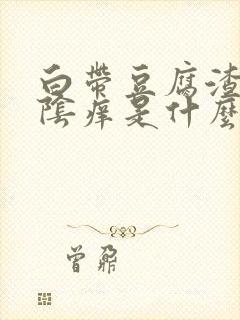 白带豆腐渣
陰痒是什麼
曾鼐